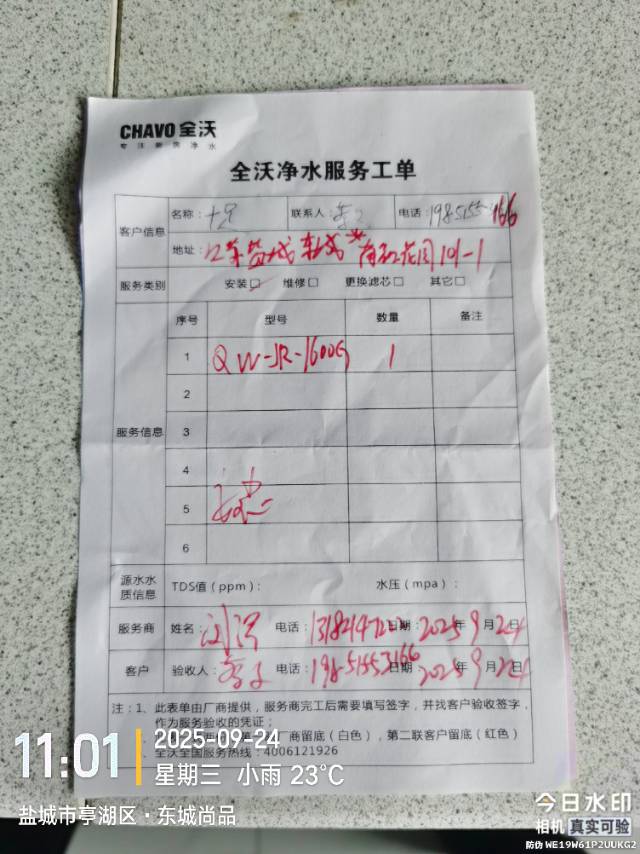 CHAVO 全沃
专注新房净水
全沃净水服务工单
客户信息
名称:
联系人:
电话:
地址:
服务类别 安装 维修□ 更换滤芯□ 其它□
服务信息
序号 型号 数量 备注
1 QW-JR-1600G 1
2
3
4
5
6
源水水质信息 TDS值(ppm): 水压(mpa):
服务商 姓名: 电话: 日期:2025年9月24日
客户 验收人: 电话: 19851553166 日期:2025年9月24日
注:1、此表单由厂商提供,服务商完工后需要填写签字,并找客户验收签字,
作为服务验收的凭证;
厂商留底(白色),第二联客户留底(红色)
全沃全国服务热线:4006121926
11:01
2025-09-24
星期三 小雨 23℃
盐城市亭湖区·东城尚品
今日水印
相机 真实可验
防伪 WE19W61P2UUKG2